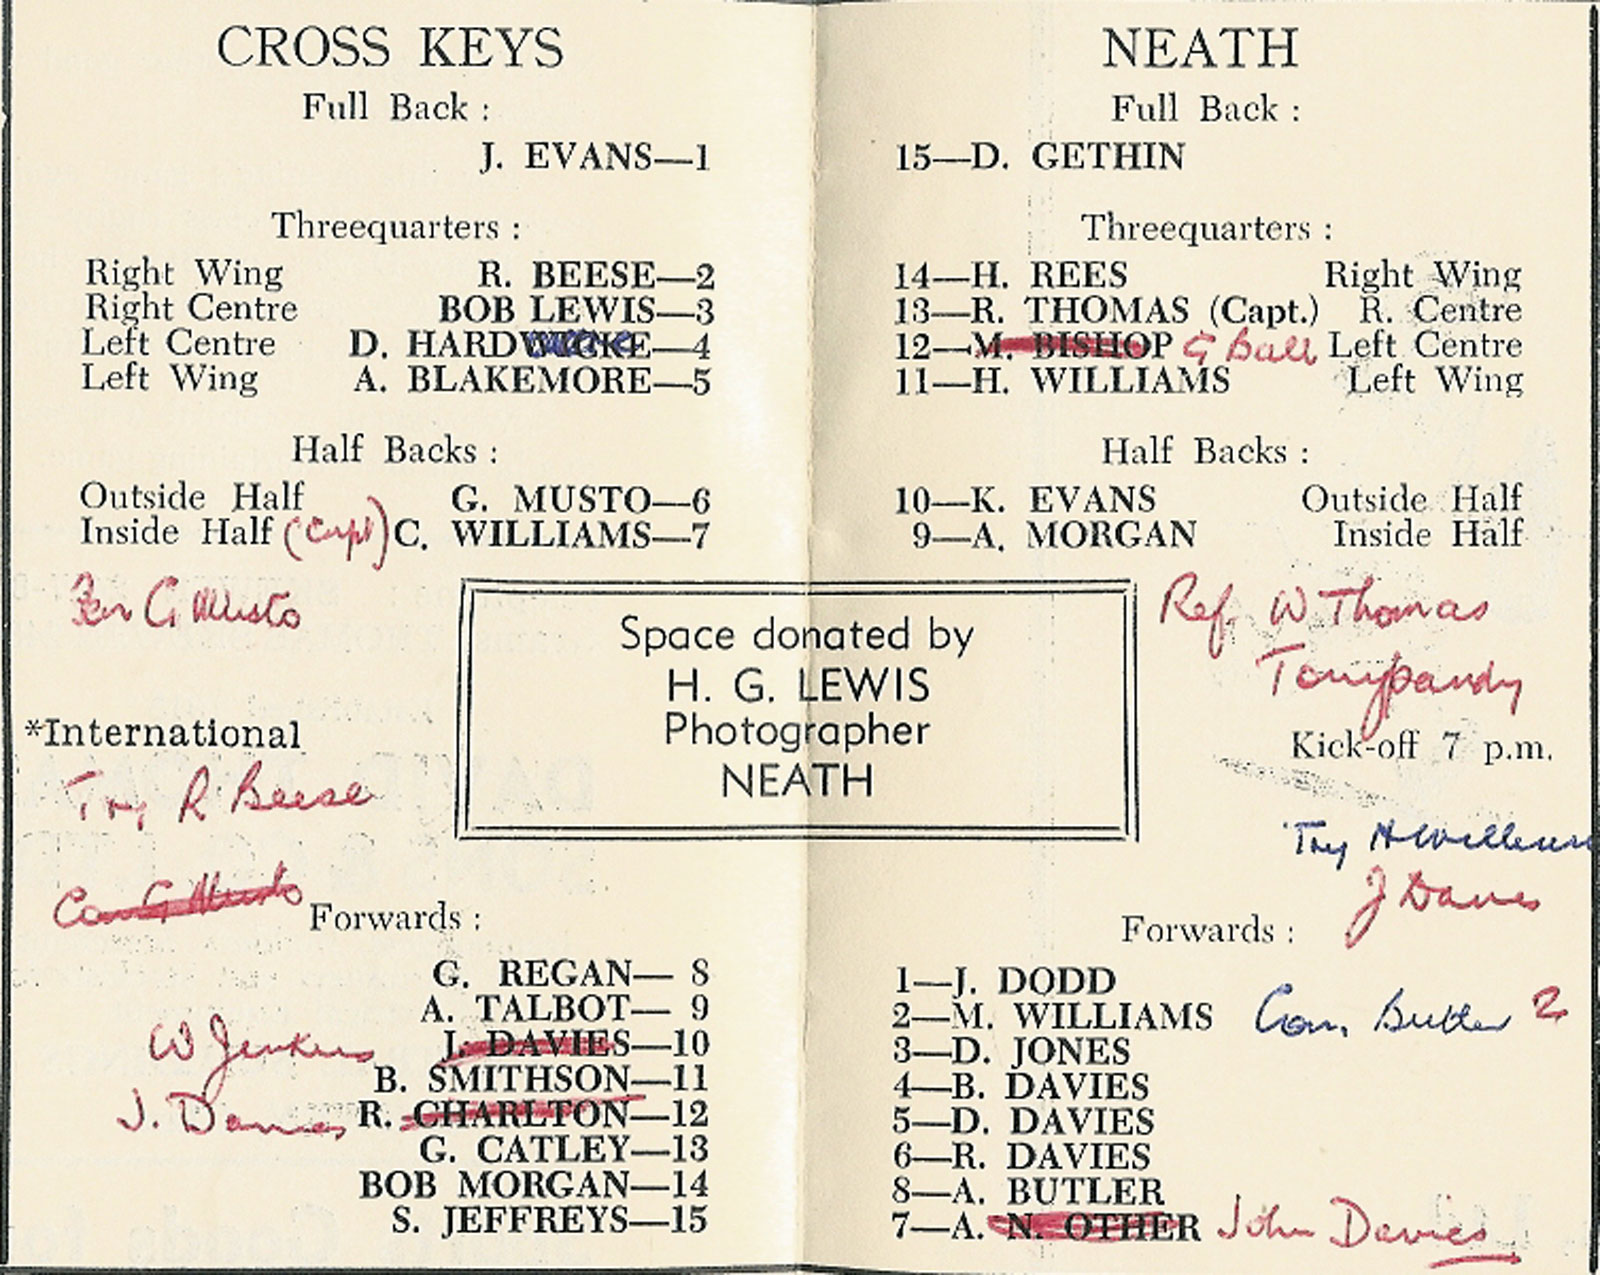 CROSS KEYS
Full Back :
J. EVANS—1
Threequarters :
Right Wing R. BEESE—2
Right Centre BOB LEWIS—3
Left Centre D. HARDWICKE—4
Left Wing A. BLAKEMORE—5
Half Backs :
Outside Half G. MUSTO—6
Inside Half (Capt) C. WILLIAMS—7
Pen G Musto
*International
Try R Beese
Con G Musto
Forwards :
G. REGAN— 8
A. TALBOT— 9
W Jenkins J. DAVIES—10
B. SMITHSON—11
J. Davies R. CHARLTON—12
G. CATLEY—13
BOB MORGAN—14
S. JEFFREYS—15
Space donated by
H. G. LEWIS
Photographer
NEATH
NEATH
Full Back :
15—D. GETHIN
Threequarters :
14—H. REES Right Wing
13—R. THOMAS (Capt.) R. Centre
12—M. BISHOP G Ball Left Centre
11—H. WILLIAMS Left Wing
Half Backs :
10—K. EVANS Outside Half
9—A. MORGAN Inside Half
Ref. W Thomas
Tonypandy
Kick-off 7 p.m.
Try H Williams
J Davies
Forwards :
1—J. DODD
2—M. WILLIAMS Con. Butler 2
3—D. JONES
4—B. DAVIES
5—D. DAVIES
6—R. DAVIES
8—A. BUTLER
7—A. N. OTHER John Davies